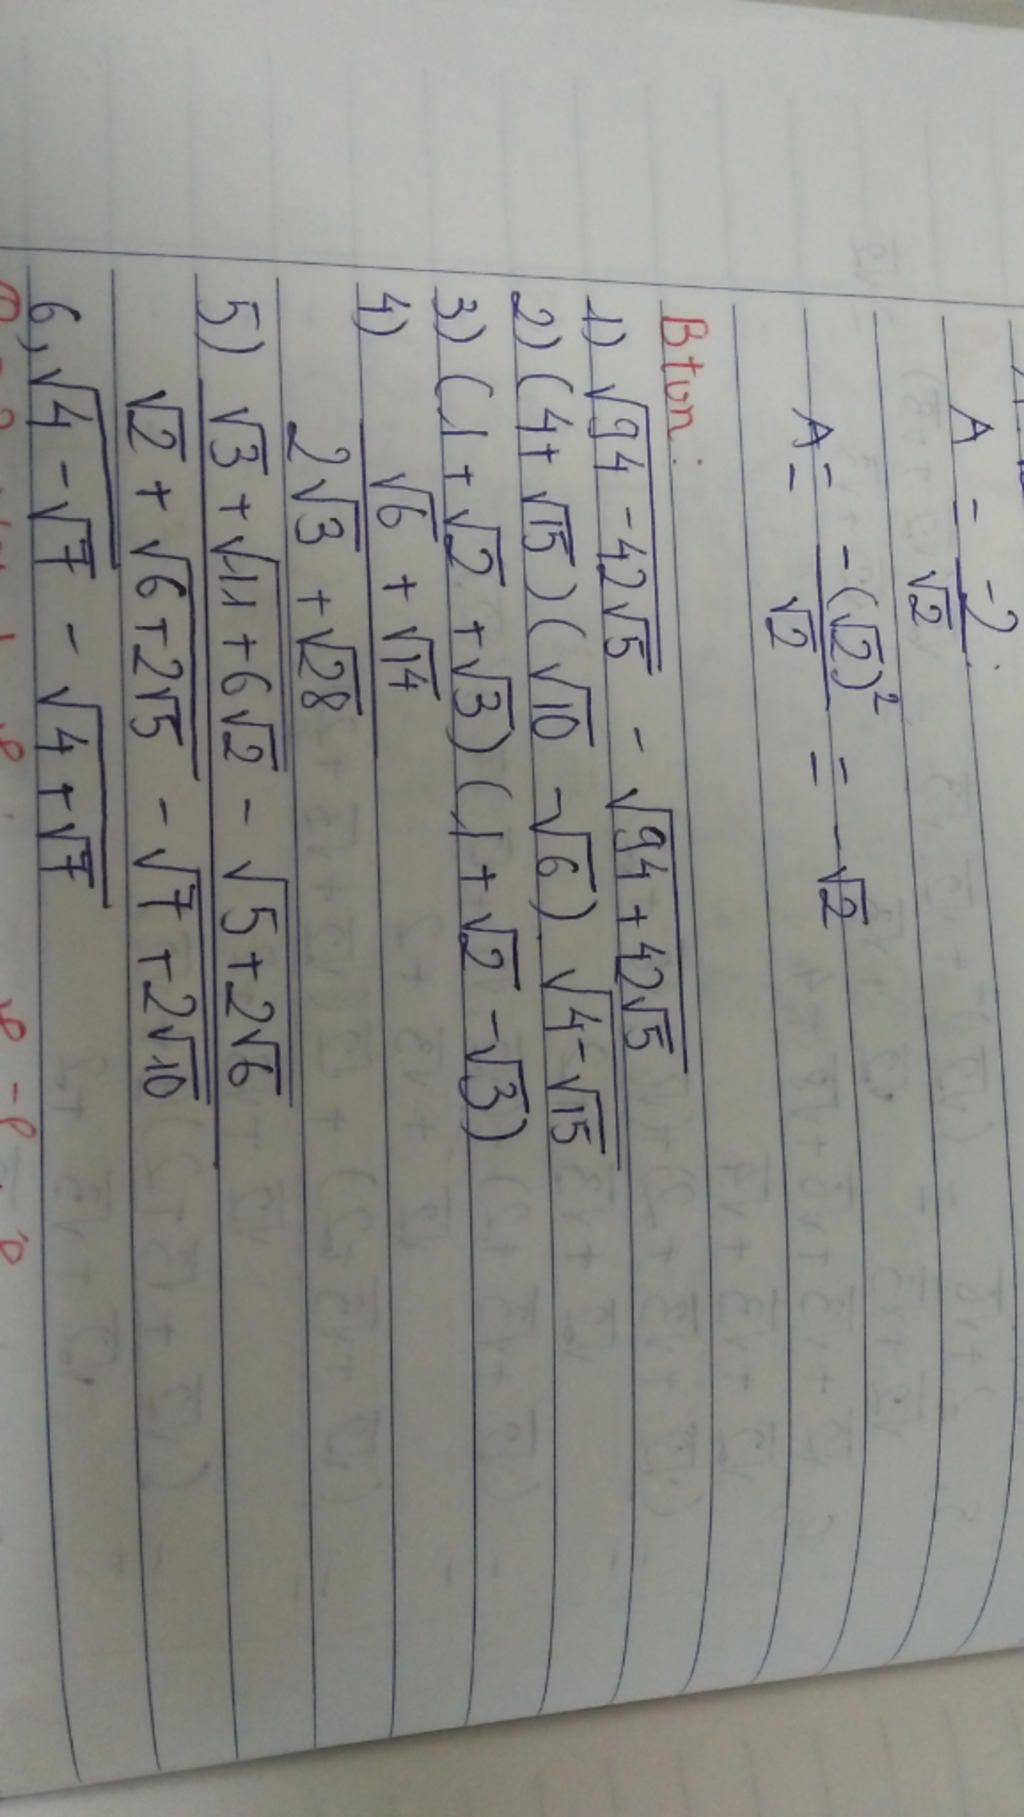 A = -2/√2
A = -(√2)²/√2 = -√2
Btvn:
1) √(94 - 42√5) - √(94 + 42√5)
2) (4 + √15)(√10 - √6).√(4 - √15)
3) (1 + √2 + √3)(1 + √2 - √3)
4) (√6 + √14)/(2√3 + √28)
5) (√3 + √(11 + 6√2) - √(5 + 2√6))/(√2 + √(6 + 2√5) - √(7 + 2√10))
6, √(4 - √7) - √(4 + √7)